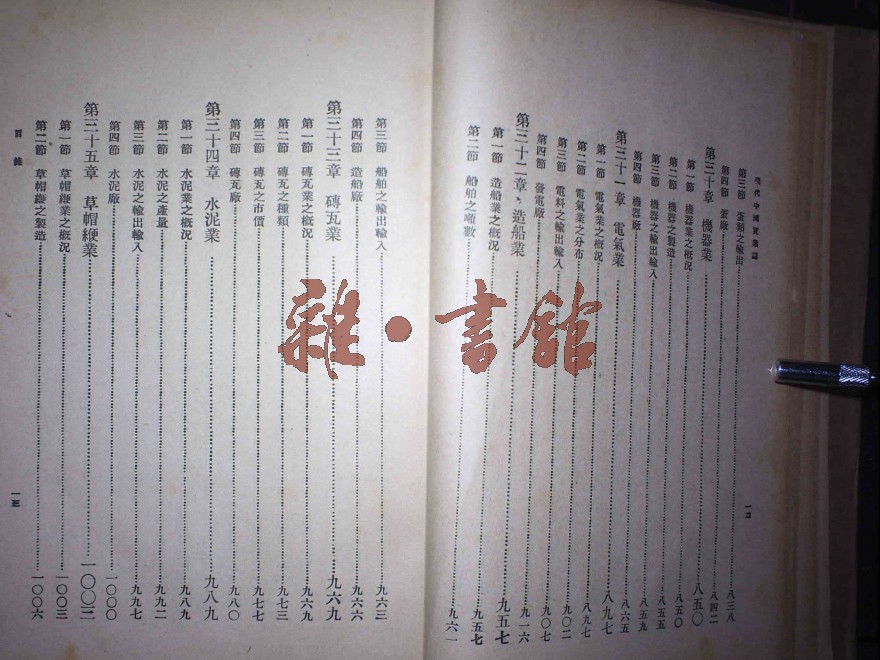 現代中國實業誌
第三節 蛋類之輸出……八三八
第四節 蛋廠……八四二
第三十章 機器業……八五〇
第一節 機器業之概況……八五〇
第二節 機器之製造……八五五
第三節 機器之輸出輸入……八五九
第四節 機器廠……八六五
第三十一章 電氣業……八九七
第一節 電氣業之概況……八九七
第二節 電氣業之分布……九〇二
第三節 電料之輸出輸入……九〇七
第四節 發電廠……九一六
第三十二章 造船業……九五七
第一節 造船業之概況……九五七
第二節 船舶之噸數……九六一
一二
第三節 船舶之輸出輸入……九六三
第四節 造船廠……九六六
第三十三章 磚瓦業……九六九
第一節 磚瓦業之概況……九六九
第二節 磚瓦之種類……九七三
第三節 磚瓦之市價……九七七
第四節 磚瓦廠……九八〇
第三十四章 水泥業……九八九
第一節 水泥業之概況……九八九
第二節 水泥之產量……九九二
第三節 水泥之輸出輸入……九九七
第四節 水泥廠……一〇〇〇
第三十五章 草帽緶業……一〇〇三
第一節 草帽緶業之概況……一〇〇三
第二節 草帽緶之製造……一〇〇六
目錄
一三
雜·書館